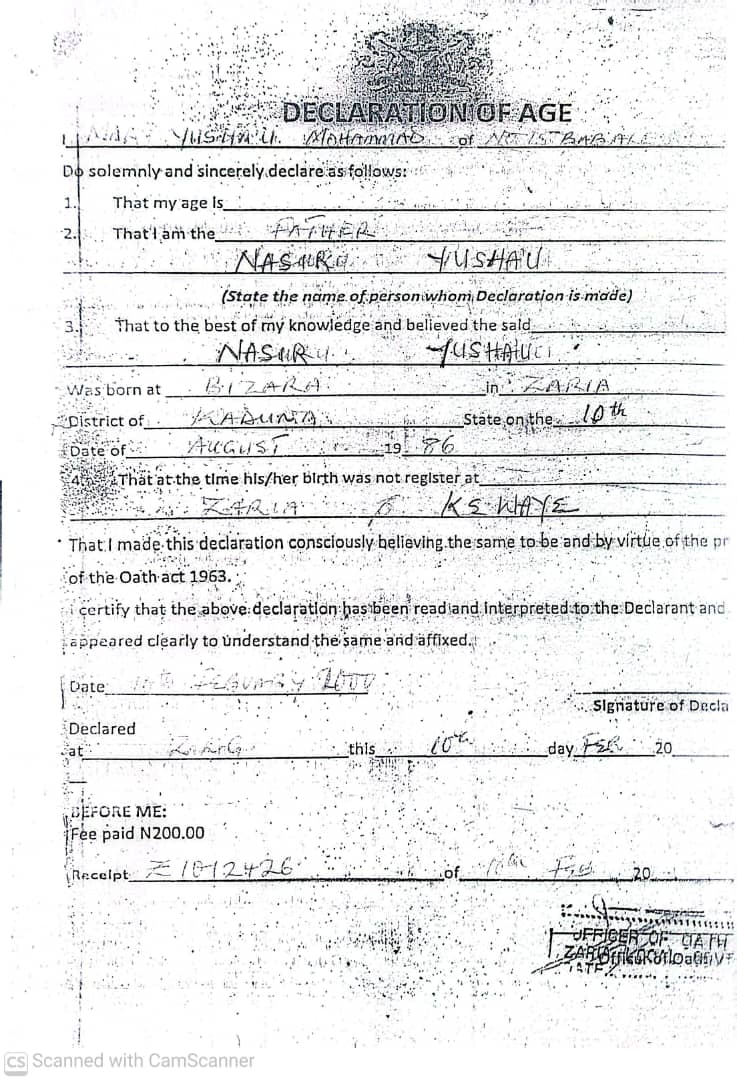 DECLARATION OF AGE
I, YUSHA'U MOHAMMAD of NO 15 BABAN
Do solemnly and sincerely declare as follows:
1. That my age is
2. That I am the FATHER
NASURU YUSHA'U
(State the name of person whom Declaration is made)
3. That to the best of my knowledge and believed the said
NASIRU YUSHAU
Was born at BIZARA in ZARIA
District of KADUNA State on the 10th
Date of AUGUST 19 86
4. That at the time his/her birth was not register at
ZARIA
That I made this declaration consciously believing the same to be and by virtue of the pr
of the Oath act 1963.
i certify that the above declaration has been read and interpreted to the Declarant and
appeared clearly to understand the same and affixed.
Date 10th February 2000
Signature of Decla
Declared
at this 10th day FEB 20
BEFORE ME:
Fee paid N200.00
Receipt Z1012426 of 10th Feb 20
OFFICER OF OATH
ZARIA
CS Scanned with CamScanner